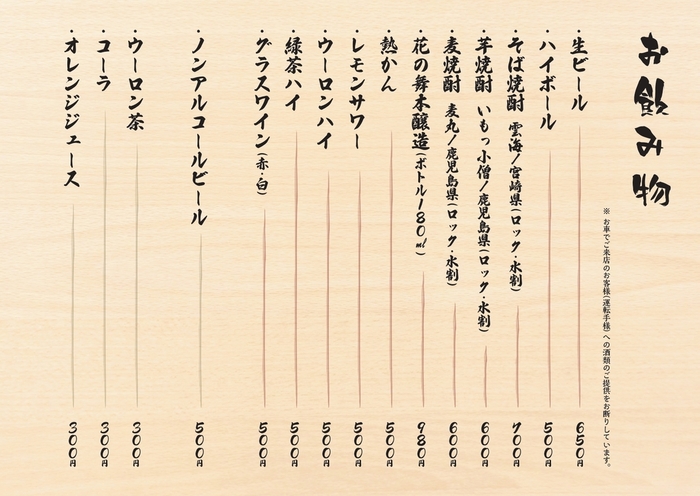 お飲み物
※ お車でご来店のお客様(運転手様)への酒類のご提供をお断りしています。
・生ビール 650円
・ハイボール 500円
・そば焼酎 雲海/宮崎県(ロック・水割) 700円
・芋焼酎 いもっ小僧/鹿児島県(ロック・水割) 600円
・麦焼酎 麦丸/鹿児島県(ロック・水割) 600円
・花の舞本醸造(ボトル180㎖) 980円
・熱かん 500円
・レモンサワー 500円
・ウーロンハイ 500円
・緑茶ハイ 500円
・グラスワイン(赤・白) 500円
・ノンアルコールビール 500円
・ウーロン茶 300円
・コーラ 300円
・オレンジジュース 300円